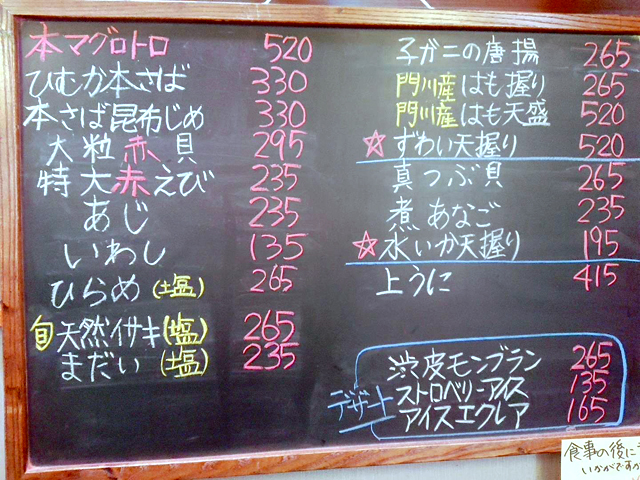 本マグロトロ 520
ひむか本さば 330
本さば昆布じめ 330
大粒赤貝 295
特大赤えび 235
あじ 235
いわし 135
ひらめ(塩) 265
旬天然イサキ(塩) 265
まだい(塩) 235
子ガニの唐揚 265
門川産はも握り 265
門川産はも天盛 520
☆ずわい天握り 520
真つぶ貝 265
煮あなご 235
☆水いか天握り 195
上うに 415
デザート
渋皮モンブラン 265
ストロベリーアイス 135
アイスエクレア 165
食事の後に
いかがですか